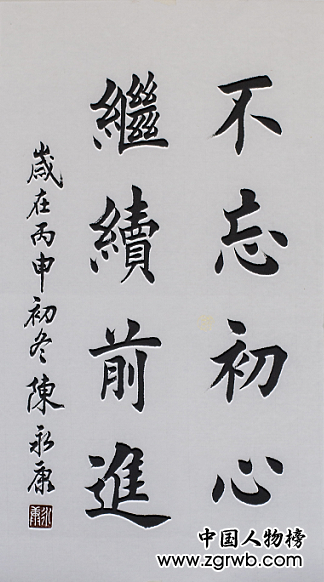 不忘初心
繼續前進
歲在丙申初冬陳永康
永康
中国人物榜
www.zgrwb.com